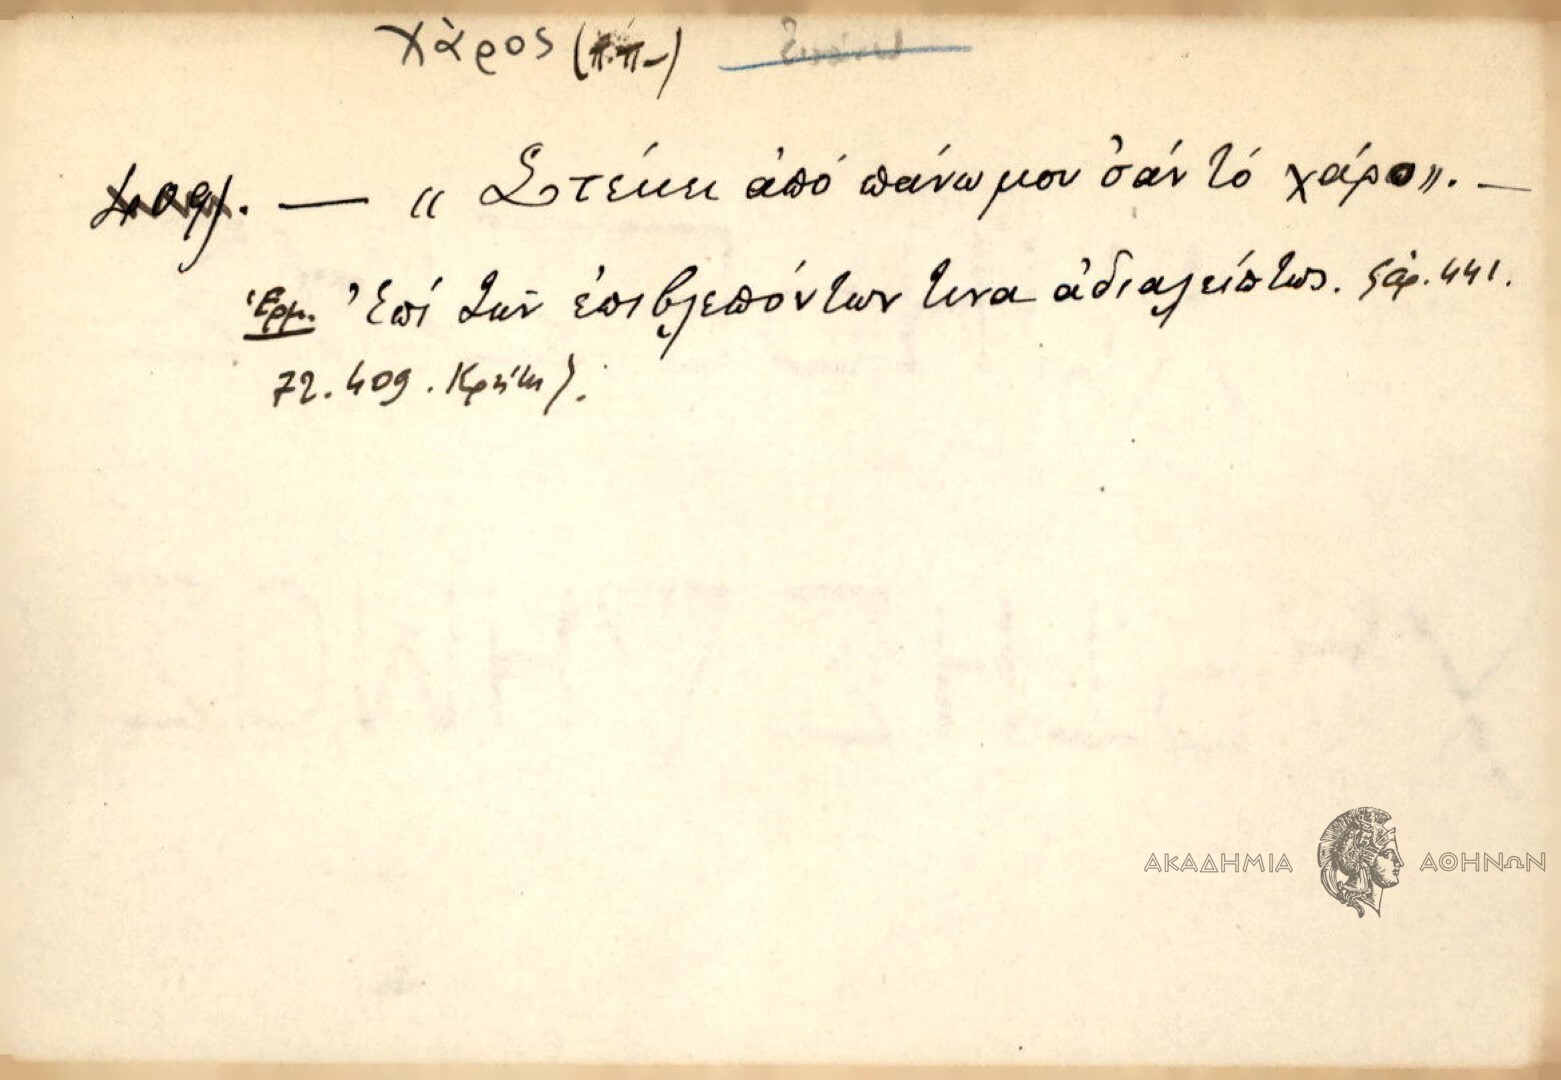 χάρος (π.π-)
409). — « Στέκει ἀπό πάνω μου σάν τό χάρο». —
Ἑρμ. Ἐπί τῶν ἐπιβλεπόντων τινα ἀδιαλείπτως. ἀρ. 441.
72. 409. Κρήτη).
ΑΚΑΔΗΜΙΑ ΑΘΗΝΩΝ